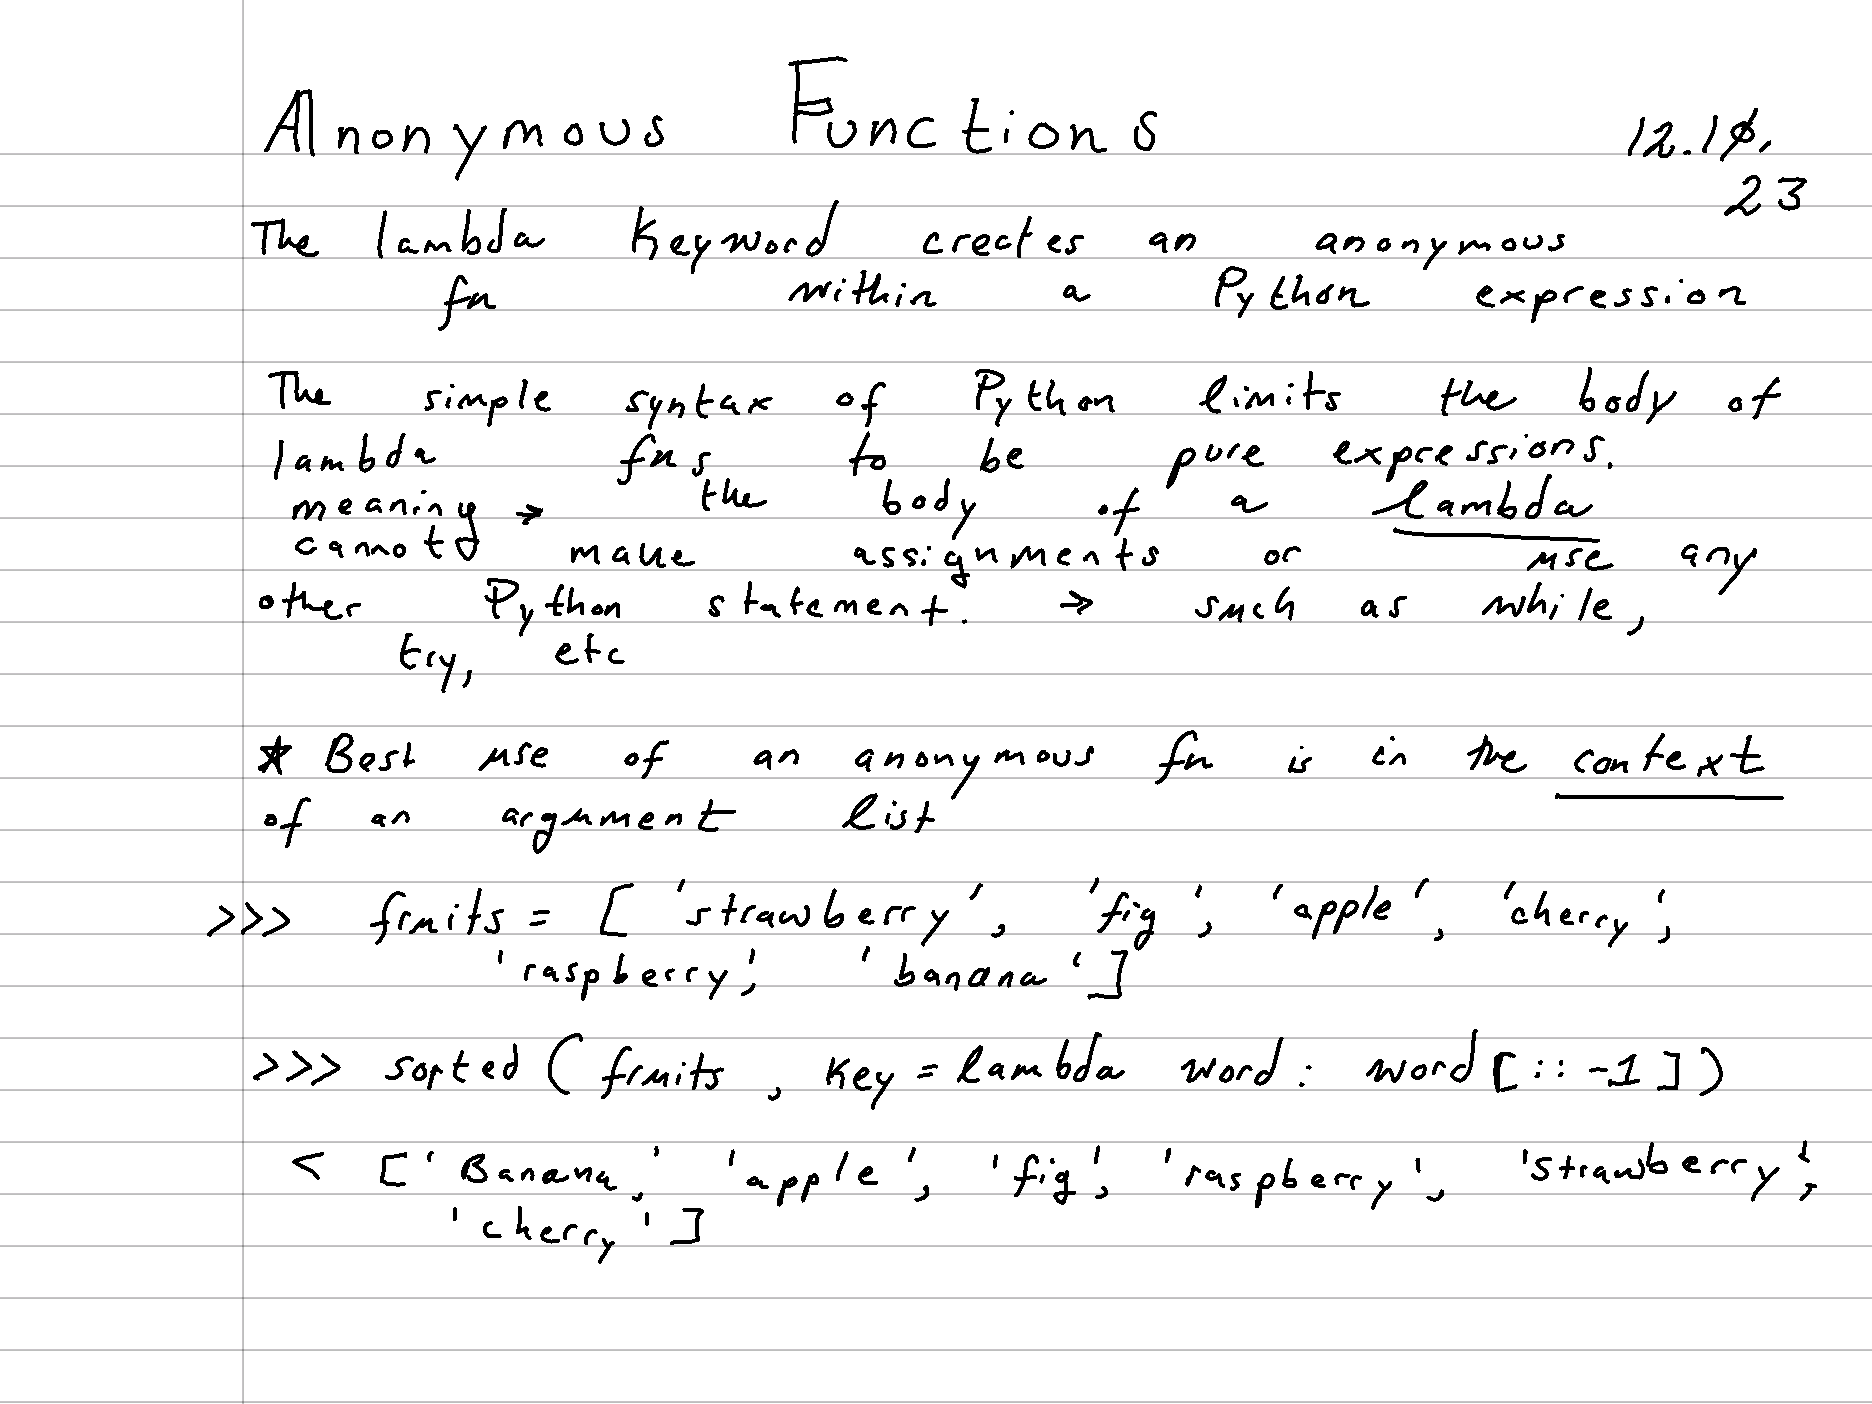 Anonymous Functions
12.10.
23
The lambda keyword creates an anonymous
fn within a Python expression
The simple syntax of Python limits the body of
lambda fns to be pure expressions.
meaning → the body of a lambda
cannot make assignments or use any
other Python statement. → such as while,
try, etc
* Best use of an anonymous fn is in the context
of an argument list
>>> fruits = [ 'strawberry', 'fig', 'apple', 'cherry',
'raspberry', 'banana' ]
>>> sorted ( fruits , key = lambda word : word [ :: -1 ] )
< [ 'Banana', 'apple', 'fig', 'raspberry', 'strawberry',
'cherry' ]